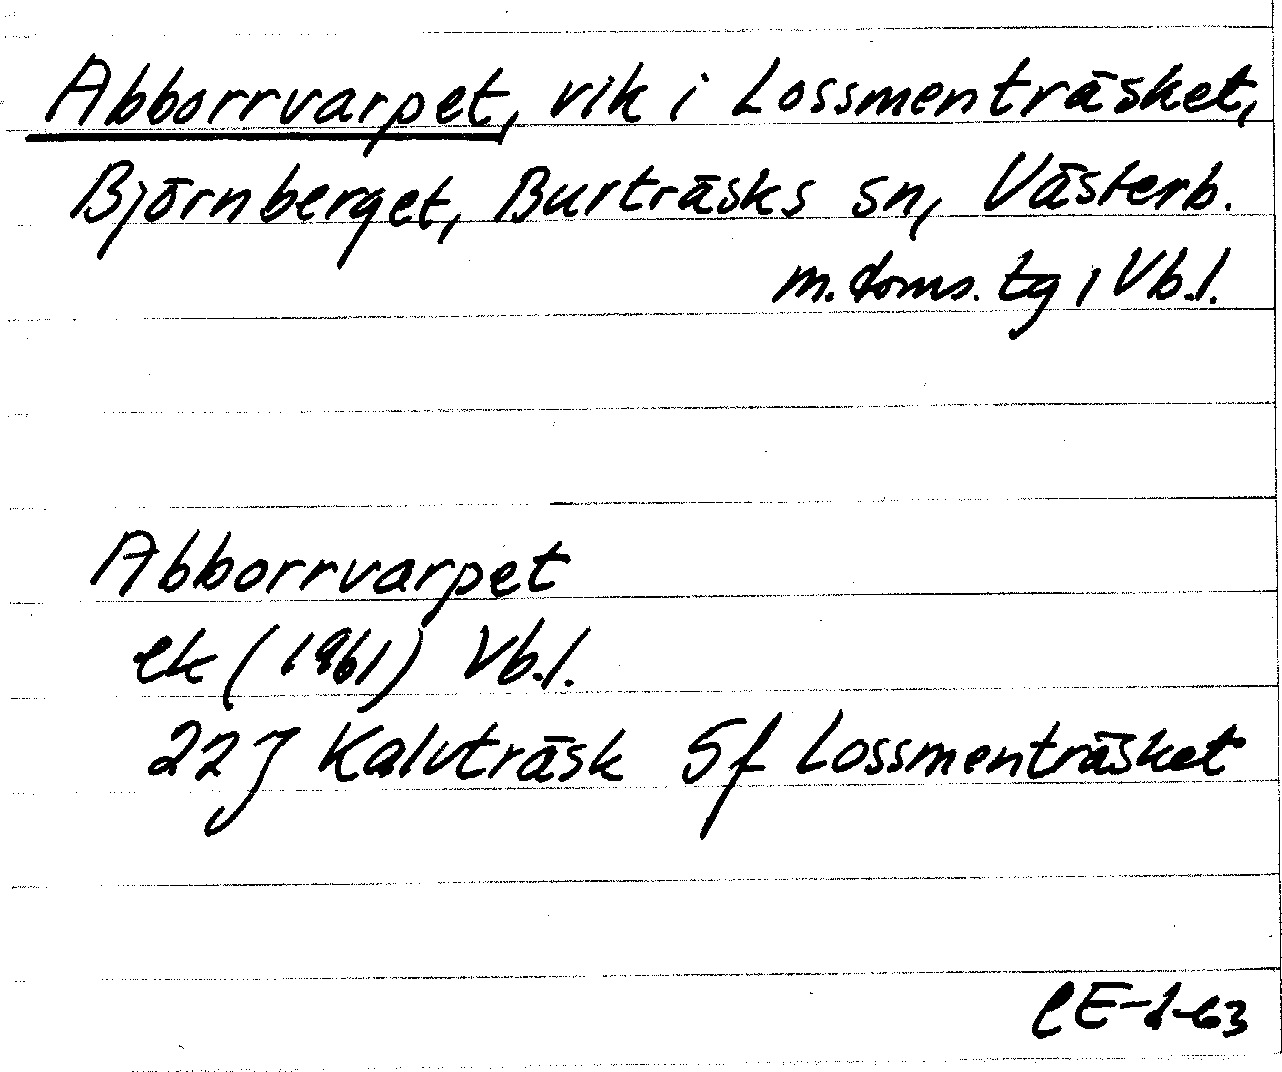 Abborrvarpet, vik i Lossmenträsket,
Björnberget, Burträsks sn, Västerb.
m. doms. tg, Vb.l.
Abborrvarpet
ek (1961) Vb.l.
22J Kalvträsk 5f Lossmenträsket
CE-1-63